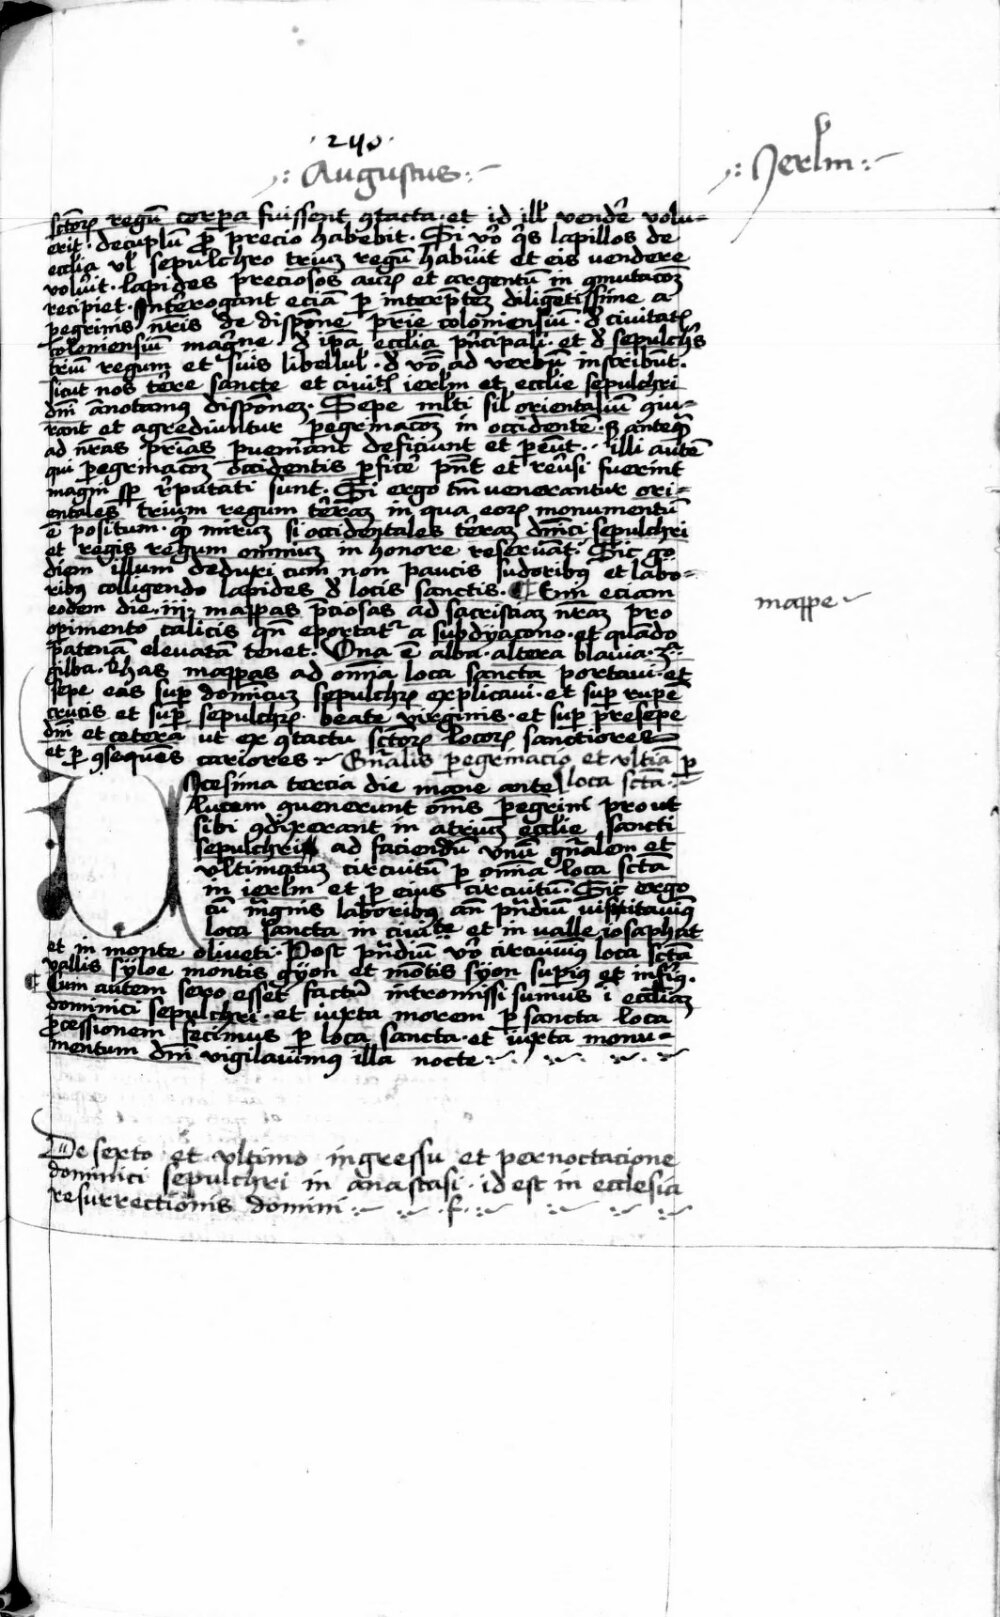 · 240 ·
Augustus
Jerlm
sctoꝝ regū corpora fuissent ꝯtacta · et id ill' vendere volu-
erit · decuplū ꝓ precio habebit · Si vo qs lapillos de
ecclia vl sepulchro trium regū habuit et eis vendere
voluit · lapides preciosos auꝝ et argentū in ꝯmutacoꝫ
recipiet · Interogant eciā per interpteꝫ diligentissime a
pegrinis nris de disposone prie coloniensiū · de civitate
coloniensiū magne · de ipa ecclia principali · et de sepulchris
triū regum et suis libellul' · de vo ad verbū inscribūt ·
sicut nos tere sancte et civit' ierlm et ecclie sepulchri
dni anotamus disposoneꝫ · Sepe mlti sil' orientaliū giu-
rant et agrediuntur pegrinacoꝫ in occidentē · sꝫ anteqꝫ
ad nras prias pueniant deficiunt et peūt · illi autē
qui pegrinacoꝫ occidentis pfice pnt et reusi fuerint
magni semp reputati sunt · Si ergo tm venerantur ori-
entales trium regum teraꝫ in qua eoꝝ monumentū
ē positum · qd mirum si occidentales teraꝫ dnici sepulchri
et regis regum omnium in honore reseruāt · Sic go
diem illum deduxi cum non paucis sudoribus et labo-
ribus colligendo lapides de locis sanctis · ¶ Emi eciam
eodem die · iij · mappas ptiosas ad sacristiaꝫ nraꝫ pro
opimento calicis qn eportatr a subdyacono · et quādo
patenā elevatā tenet · Una ē alba · altera blauia · 3a ·
gilba · Et has mappas ad omnia loca sancta portaui · et
sepe eas sup dominicū sepulchꝝ explicaui · et sup rupē
crucis et sup sepulchꝝ beate virginis · et sup presepe
dni et cetera ut ex ꝯtactu sctoꝝ locoꝝ sanctiores
et p ꝯsequēs cariores · Gnalis pegrinacio et vltia p
loca scta ·
mappe
Vicesima tercia die mane ante
lucem ꝯuenerunt oms pegrini prout
sibi ꝯdixerant in atrium ecclie sancti
sepulchri ad faciendū vnū gnalem et
vltimatū circuitū p omnia loca scta
in ierlm et p eius circuitū · Sic ergo
cū magnis laboribus an prandiū visitavimus
loca sancta in civitate et in valle iosaphat
et in monte oliveti · Post prandiū vo circuivimus loca scta
vallis syloe montis gyon et mōtis syon superius et inferius ·
¶ Cum autem sero esset factū intromissi sumus i eccliaꝫ
dominici sepulchri · et iuxta morem p sancta loca
processionem fecimus p loca sancta · et iuxta monu-
mentum dni vigilauimus illa nocte
De sexto et vltimo ingressu et pernoctacione
dominici sepulchri in anastasi · id est in ecclesia
resurrectionis domini